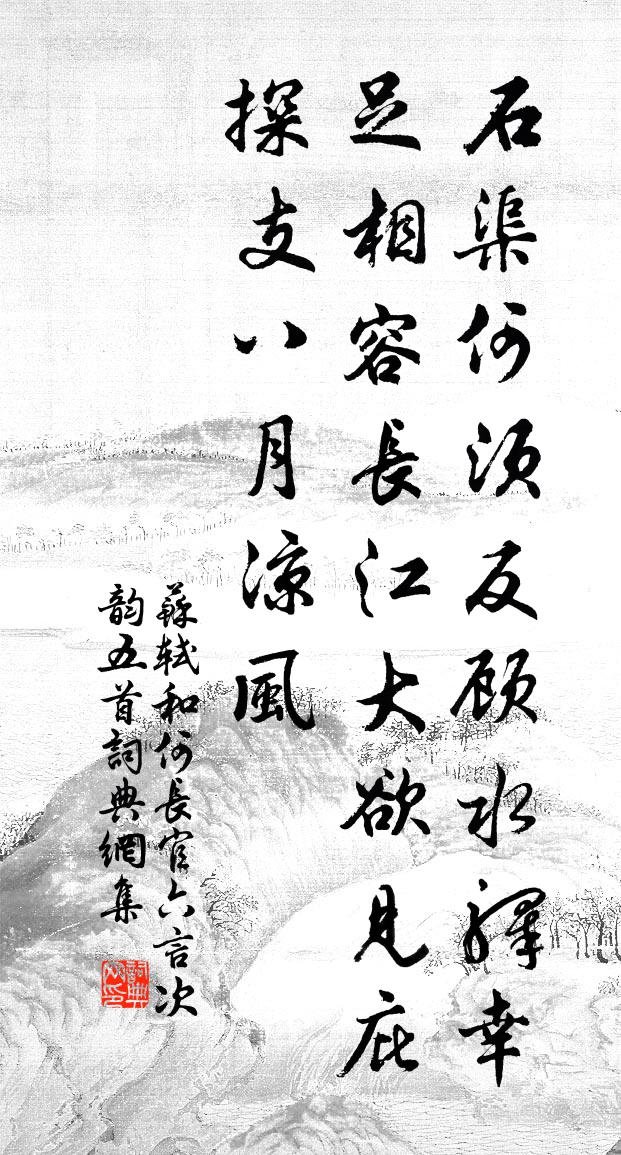 石渠何須反顧水驛幸
足相容長江大欲見庇
探支八月涼風
蘇軾和何長官六言次
韻五首詞典網集
詞典
网印